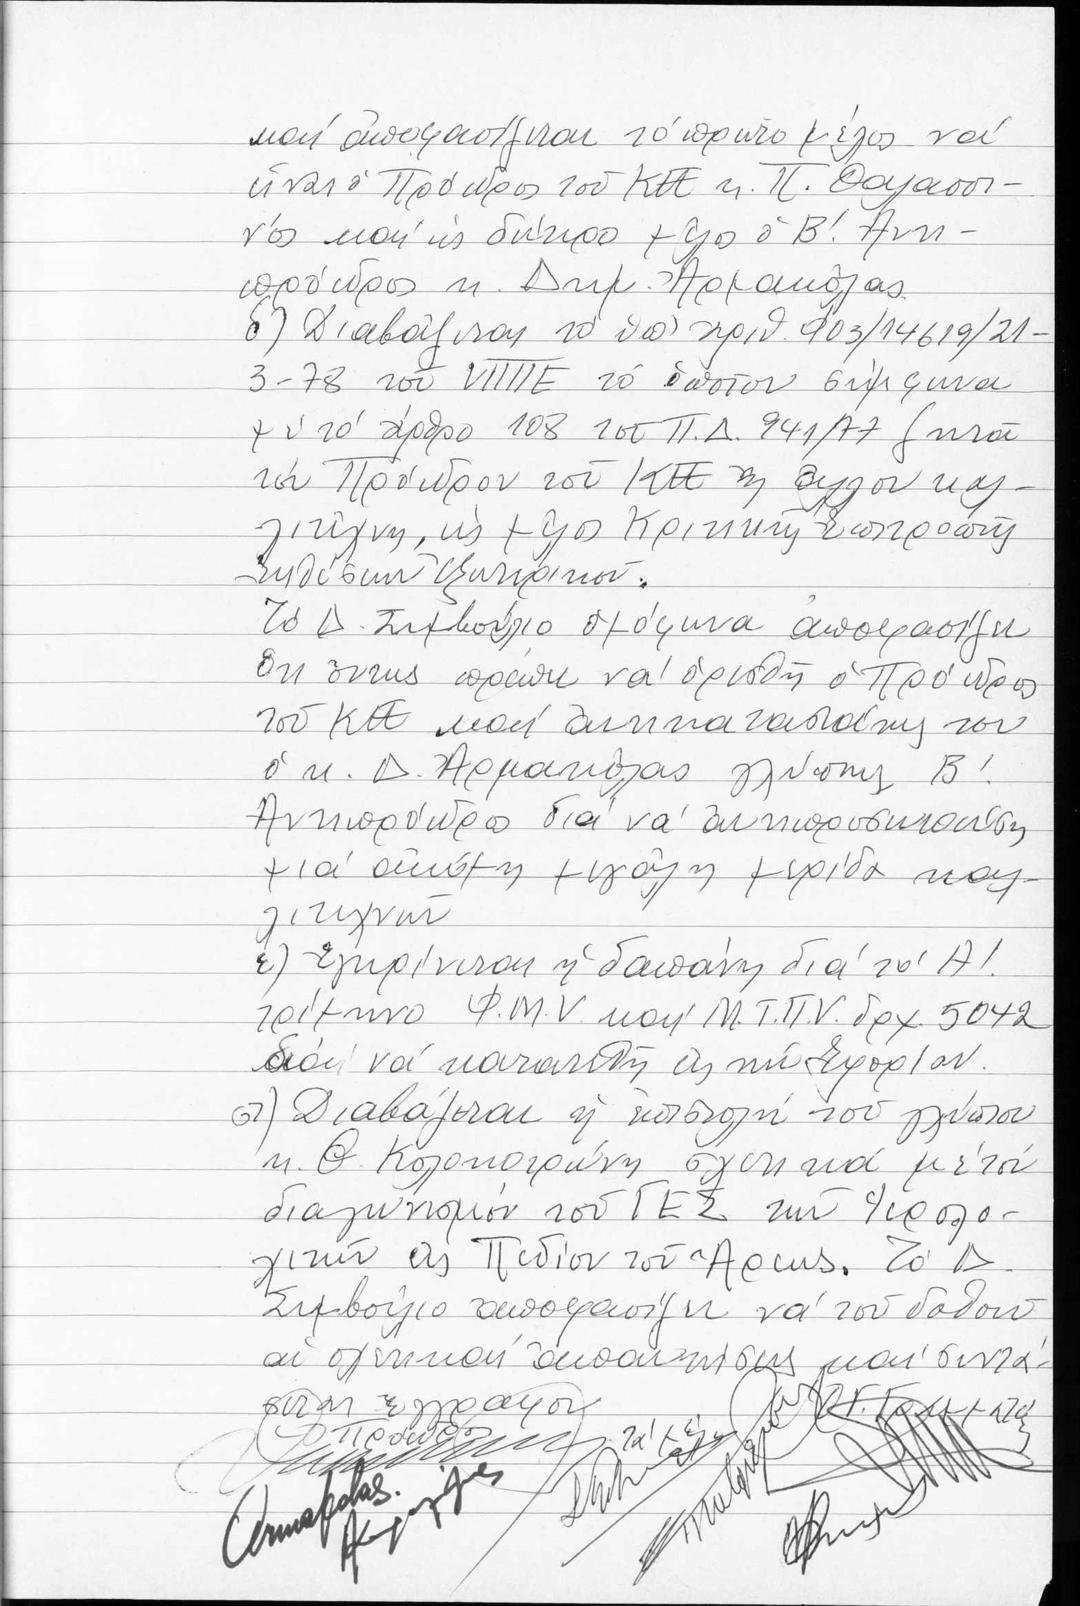 καί ἀποφασίζεται τό πρῶτο μέλος νά
εἶναι ὁ Πρόεδρος τοῦ ΚΤΕ κ. Π. Θαλασσι-
νός καί ὡς δεύτερο μέλος ὁ Β! Αντι-
πρόεδρος κ. Δημ. Ἀρμακόλας
δ) Διαβάζεται τό ὑπ' ἀριθ. 903/14619/21-
3-78 τοῦ ΥΠΠΕ τό ὁποῖον σύμφωνα
μέ τό ἄρθρο 108 τοῦ Π.Δ. 941/77 ζητᾶ
τόν Πρόεδρον τοῦ ΚΤΕ ἤ ἄλλον καλ-
λιτέχνη, ὡς μέλος Κριτικῆς Ἐπιτροπῆς
Ἐκθέσεων Ἐξωτερικοῦ.
Τό Δ. Συμβούλιο ὁμόφωνα ἀποφασίζει
ὅτι ὄντως πρέπει νά ὁρισθῆ ὁ Πρόεδρος
τοῦ ΚΤΕ καί ἀντικαταστάτης του
ὁ κ. Δ. Ἀρμακόλας γλύπτης Β!
Αντιπρόεδρος διά νά ἀντιπροσωπεύση
μιά ἀκόμη μεγάλη μερίδα καλ-
λιτεχνῶν
ε) Ἐγκρίνεται ἡ δαπάνη διά τό Α!
τρίμηνο Φ.Μ.Υ καί Μ.Τ.Π.Υ. δρχ. 5042
διά νά κατατεθῆ εἰς τήν Ἐφορίαν.
στ) Διαβάζεται ἡ ἐπιστολή τοῦ γλύπτου
κ. Θ. Κολοκοτρώνη σχετικά μέ τόν
διαγωνισμόν τοῦ ΓΕΣ τῶν Ἱερολο-
χιτῶν εἰς Πεδίον τοῦ Ἄρεως. Τό Δ.
Συμβούλιο ἀποφασίζει νά τοῦ δοθοῦν
αἱ σχετικαί ἀπαντήσεις καί συντά-
σεται ἔγγραφον
Ὁ Πρόεδρος Τά μέλη Ὁ Γ. Γραμματεύς
Armakolas